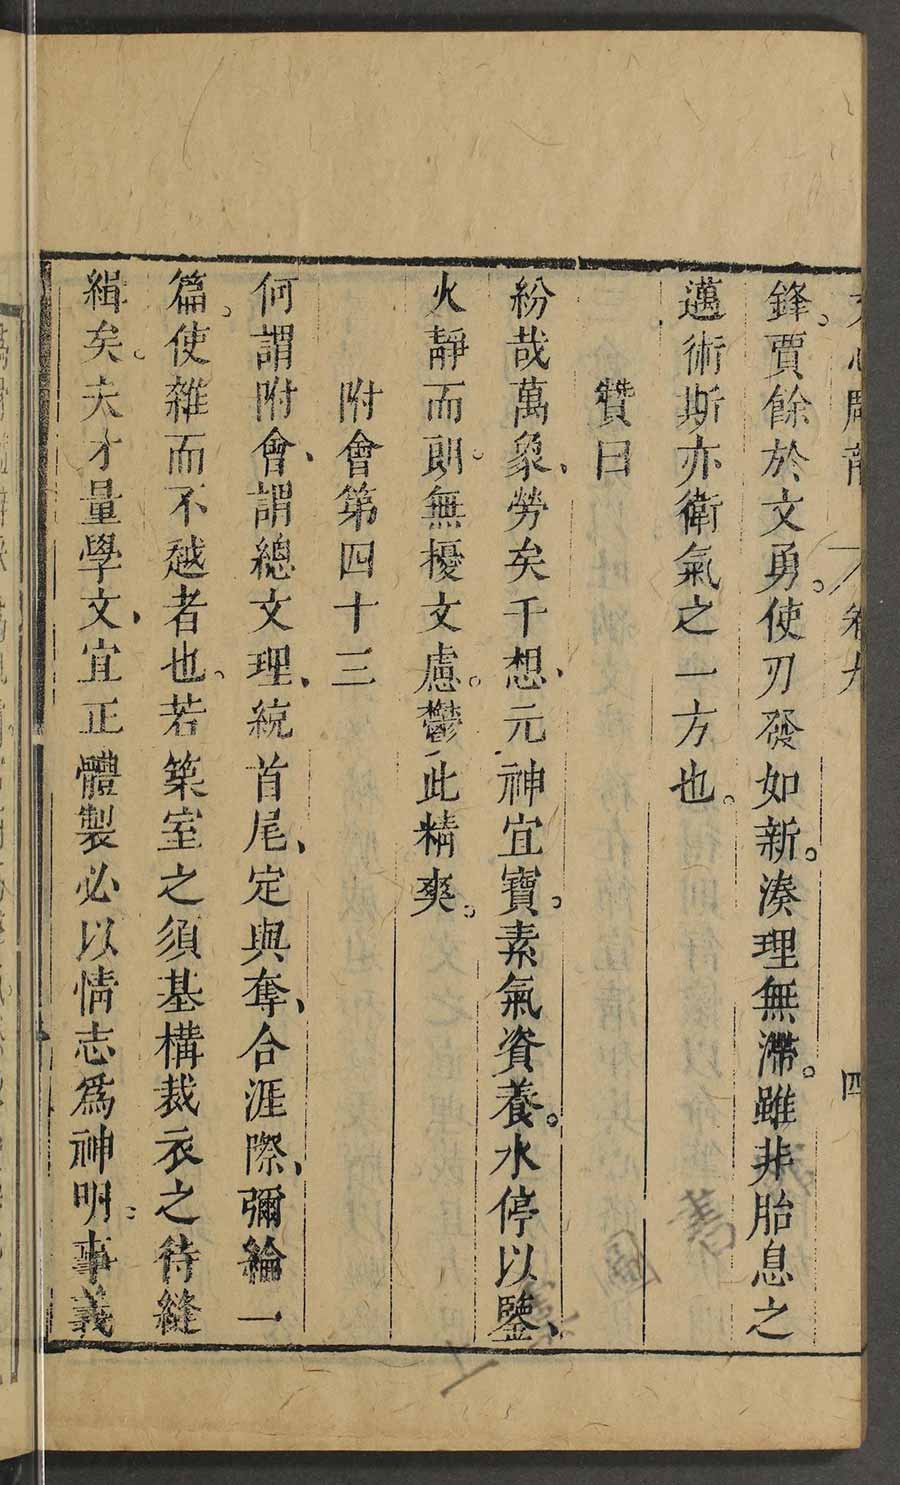 文心雕龍 卷九 四
鋒。賈餘於文勇。使刃發如新。湊理無滯。雖非胎息之
邁術斯亦衛氣之一方也。
贊曰
紛哉萬象、勞矣千想、元神宜寶。素氣資養。水停以鑒、
火靜而朗。無擾文慮。鬱此精爽。
附會第四十三
何謂附會、謂總文理、統首尾、定與奪、合涯際、彌綸一
篇。使雜而不越者也。若築室之須基構裁衣之待縫
緝矣。夫才量學文、宜正體製必以情志爲神明。事義